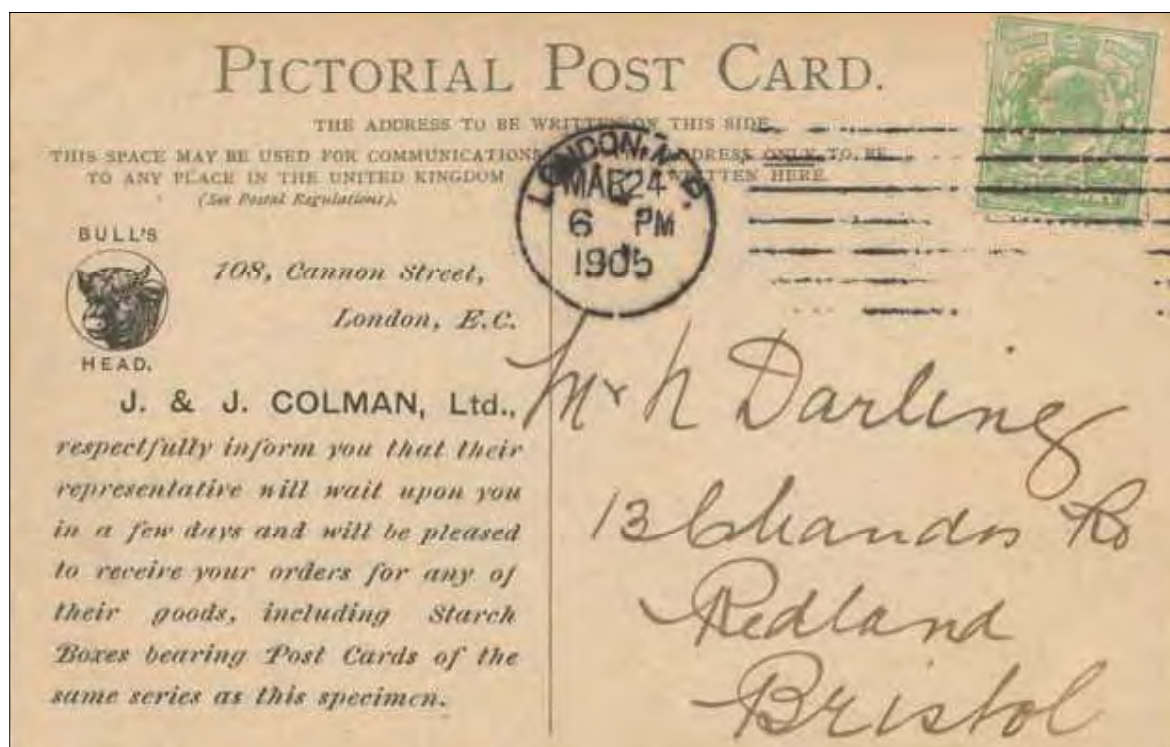 PICTORIAL POST CARD.
THE ADDRESS TO BE WRITTEN ON THIS SIDE
THIS SPACE MAY BE USED FOR COMMUNICATIONS
TO ANY PLACE IN THE UNITED KINGDOM
(See Postal Regulations).
ADDRESS ONLY TO BE
WRITTEN HERE.
LONDON,
MAR 24
6 PM
1905
BULL'S
HEAD.
108, Cannon Street,
London, E.C.
J. & J. COLMAN, Ltd.,
respectfully inform you that their
representative will wait upon you
in a few days and will be pleased
to receive your orders for any of
their goods, including Starch
Boxes bearing Post Cards of the
same series as this specimen.
Mr N Darling
13 Chandos Rd
Redland
Bristol